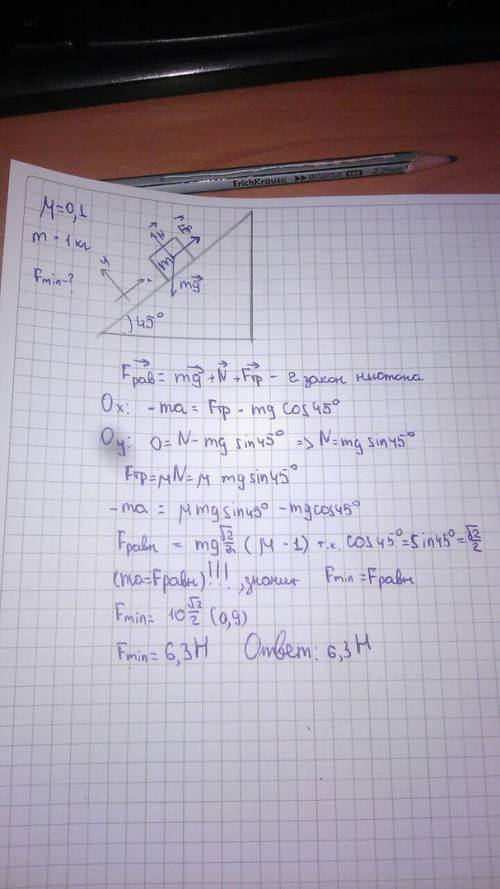 ErichKrause ▸▸ MEGAPOLIS
μ=0,1
m = 1 кг
Fmin-?
y
x
N
Fтр
m
mg
45°
Fрав = mg + N + Fтр - 2 закон ньютона
Ox: -ma = Fтр - mg cos45°
Oy: 0 = N - mg sin45° => N = mg sin45°
Fтр = μN = μ mg sin45°
-ma = μ mg sin45° - mg cos45°
Fравн = mg √2/2 (μ - 1) т.к. cos45° = sin45° = √2/2
(ma = Fравн)!!!, значит Fmin = Fравн
Fmin = 10 √2/2 (0,9)
Fmin = 6,3 Н Ответ: 6,3 Н